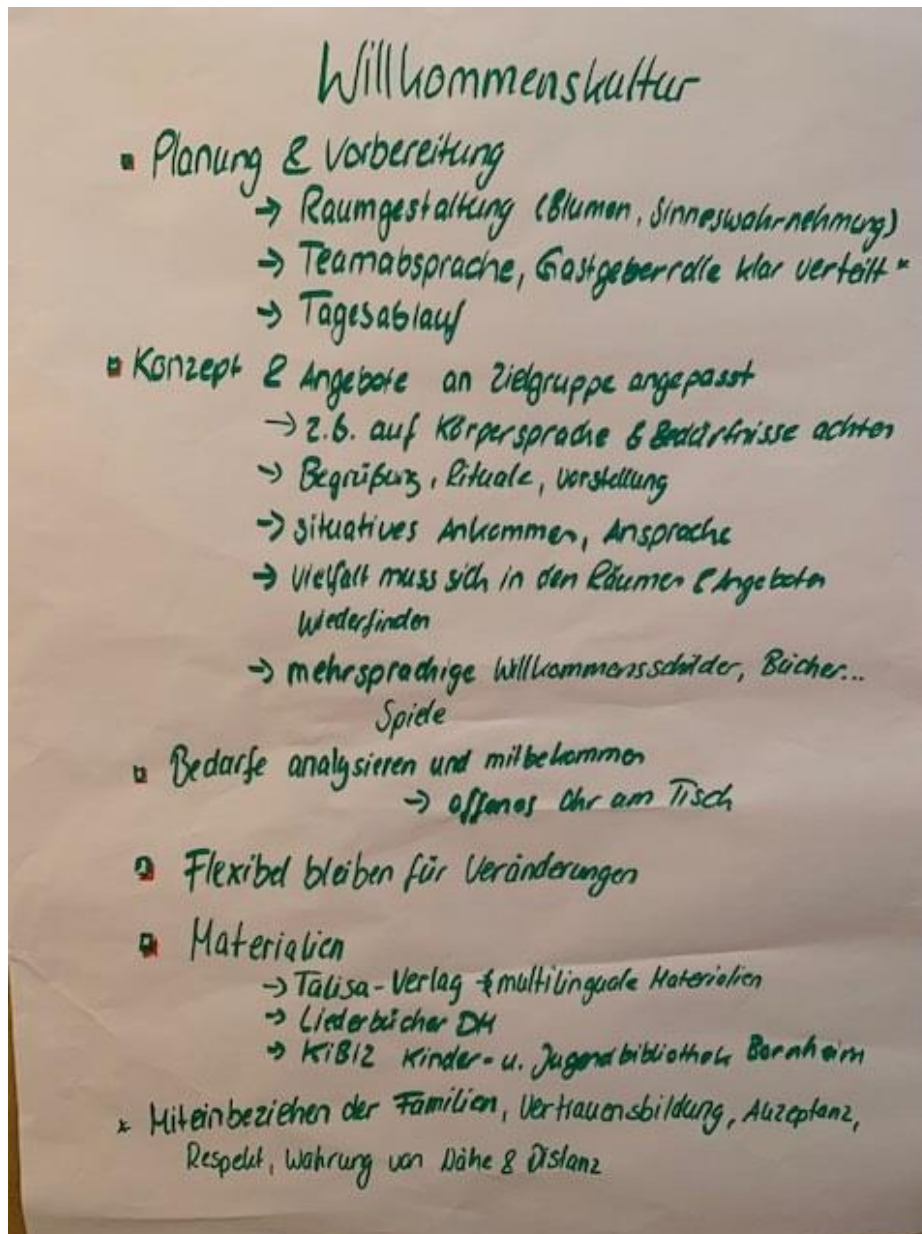 Willkommenskultur
▪ Planung & Vorbereitung
→ Raumgestaltung (Blumen, Sinneswahrnehmung)
→ Teamabsprache, Gastgeberrolle klar verteilt *
→ Tagesablauf
▪ Konzept & Angebote an Zielgruppe angepasst
→ z.B. auf Körpersprache & Bedürfnisse achten
→ Begrüßung, Rituale, Vorstellung
→ situatives Ankommen, Ansprache
→ Vielfalt muss sich in den Räumen & Angeboten
wiederfinden
→ mehrsprachige Willkommensschilder, Bücher...
Spiele
▪ Bedarfe analysieren und mitbekommen
→ offenes Ohr am Tisch
▪ Flexibel bleiben für Veränderungen
▪ Materialien
→ Talisa-Verlag multilinguale Materialien
→ Liederbücher DM
→ KiBiZ Kinder- u. Jugendbibliothek Bornheim
* Miteinbeziehen der Familien, Vertrauensbildung, Akzeptanz,
Respekt, Wahrung von Nähe & Distanz